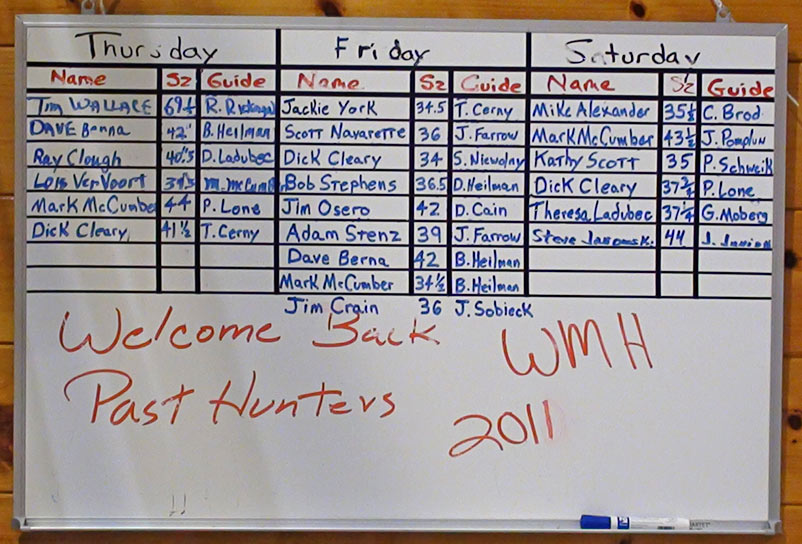 Thursday Friday Saturday
Name Sz Guide Name Sz Guide Name Sz Guide
Tim WALLACE Jackie York 34.5 T. Cerny Mike Alexander 35½ C. Brod
DAVE Benna 42" B. Heilman Scott Navarette 36 J. Farrow Mark McCumber 43½ J. Pomplun
Ray Clough D. Ladubec Dick Cleary 34 S. Niewolny Kathy Scott 35 P. Schweik
Lois VerVoort Bob Stephens 36.5 D. Heilman Dick Cleary P. Lone
Mark McCumber 44 P. Lone Jim Osero 42 D. Cain Theresa Ladubec 37¼ G. Moberg
Dick Cleary 41½ T. Cerny Adam Stenz 39 J. Farrow Steve 44 J.
Dave Berna 42 B. Heilman
Mark McCumber 34½ B. Heilman
Jim Crain 36 J. Sobieck
Welcome Back WMH
Past Hunters 2011